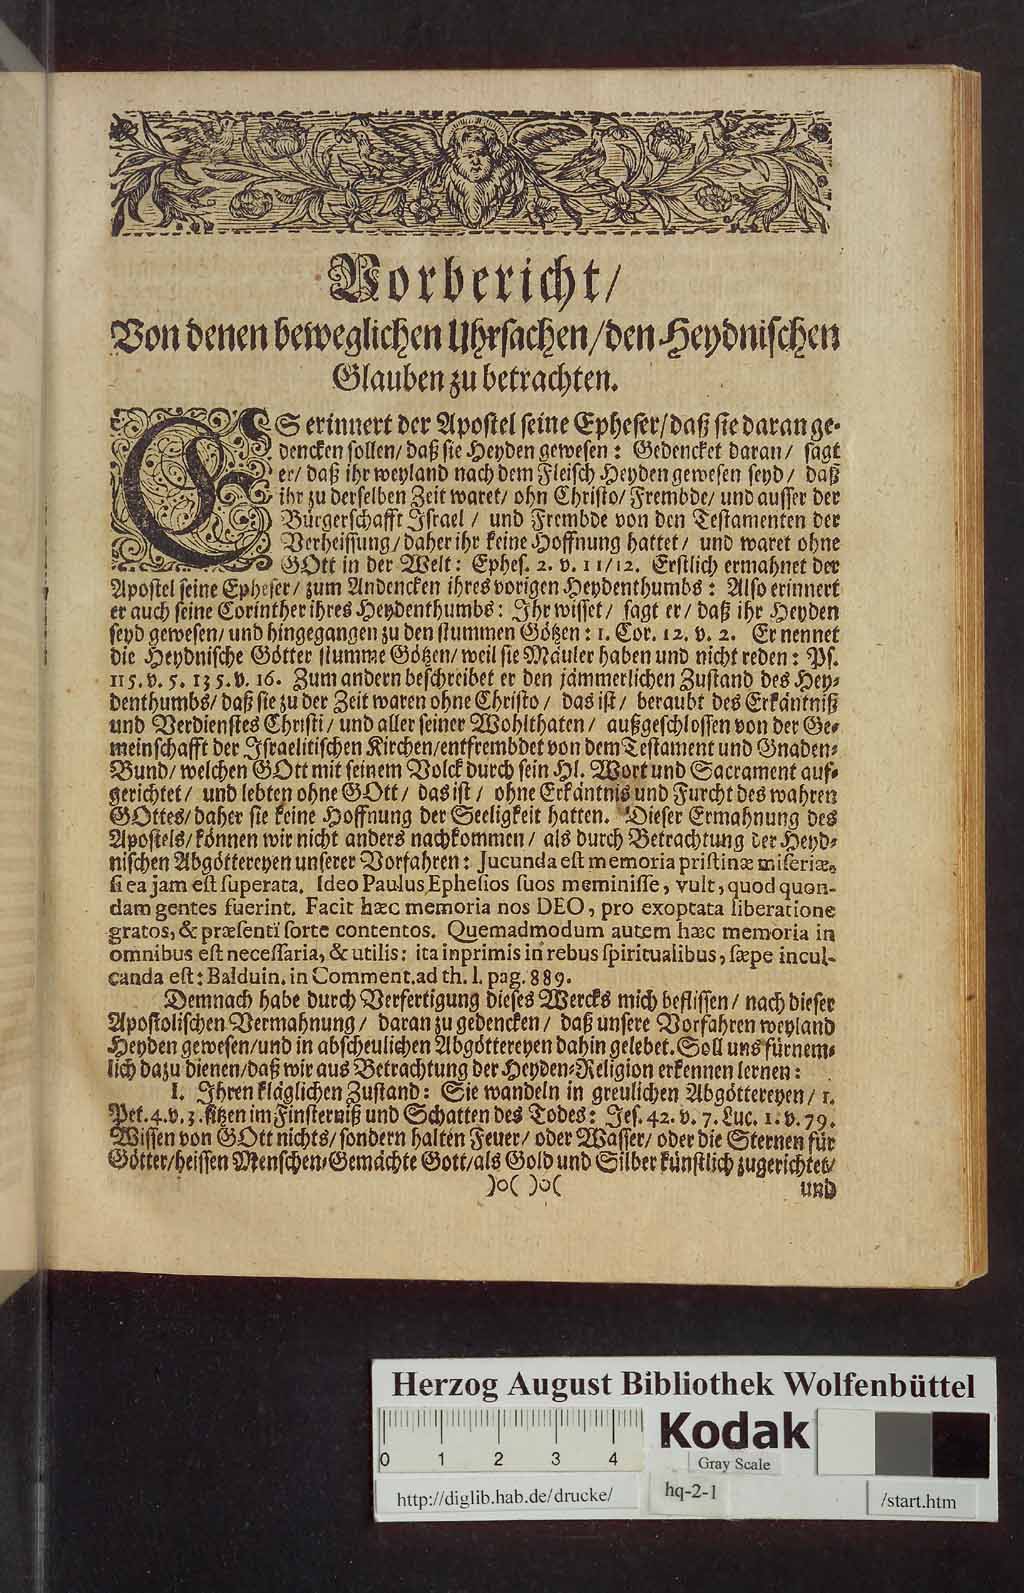 Vorbericht/
Von denen beweglichen Uhrsachen/den Heydnischen
Glauben zu betrachten.
ES erinnert der Apostel seine Epheser/daß sie daran ge-
dencken sollen/daß sie Heyden gewesen: Gedencket daran/ sagt
er/daß ihr weyland nach dem Fleisch Heyden gewesen seyd/ daß
ihr zu derselben Zeit waret/ ohn Christo/ Frembde/ und ausser der
Bürgerschafft Israel/ und Frembde von den Testamenten der
Verheissung/daher ihr keine Hoffnung hattet/ und waret ohne
GOtt in der Welt: Ephes. 2. v. 11/12. Erstlich ermahnet der
Apostel seine Epheser/ zum Andencken ihres vorigen Heydenthumbs: Also erinnert
er auch seine Corinther ihres Heydenthumbs: Ihr wisset/ sagt er/ daß ihr Heyden
seyd gewesen/ und hingegangen zu den stummen Götzen: 1. Cor. 12. v. 2. Er nennet
die Heydnische Götter stumme Götzen/ weil sie Mäuler haben und nicht reden: Ps.
115. v. 5. 135. v. 16. Zum andern beschreibet er den jämmerlichen Zustand des Hey-
denthumbs/ daß sie zu der Zeit waren ohne Christo/ das ist/ beraubt des Erkäntniß
und Verdienstes Christi/ und aller seiner Wohlthaten/ außgeschlossen von der Ge-
meinschafft der Israelitischen Kirchen/entfrembdet von dem Testament und Gnaden-
Bund/ welchen GOtt mit seinem Volck durch sein Hl. Wort und Sacrament auf-
gerichtet/ und lebten ohne GOtt/ das ist/ ohne Erkäntnis und Furcht des wahren
GOttes/daher sie keine Hoffnung der Seeligkeit hatten. Dieser Ermahnung des
Apostels/können wir nicht anders nachkommen/ als durch Betrachtung der Heyd-
nischen Abgöttereyen unserer Vorfahren: Jucunda est memoria pristinæ miseriæ,
si ea jam est superata. Ideo Paulus Ephesios suos meminisse, vult, quod quon-
dam gentes fuerint. Facit hæc memoria nos DEO, pro exoptata liberatione
gratos, & præsenti sorte contentos. Quemadmodum autem hæc memoria in
omnibus est necessaria, & utilis: ita inprimis in rebus spiritualibus, sæpe incul-
canda est: Balduin. in Comment. ad th. l. pag. 889.
Demnach habe durch Verfertigung dieses Wercks mich beflissen/ nach dieser
Apostolischen Vermahnung/ daran zu gedencken/ daß unsere Vorfahren weyland
Heyden gewesen/und in abscheulichen Abgöttereyen dahin gelebet. Soll uns fürnem-
lich dazu dienen/daß wir aus Betrachtung der Heyden-Religion erkennen lernen:
I. Ihren kläglichen Zustand: Sie wandeln in greulichen Abgöttereyen/ 1.
Pet. 4. v. 3. sitzen im Finsterniß und Schatten des Todes: Jes. 42. v. 7. Luc. 1. v. 79.
Wissen von GOtt nichts/ sondern halten Feuer/ oder Wasser/ oder die Sternen für
Götter/heissen Menschen-Gemächte Gott/als Gold und Silber künstlich zugerichtet/
)o( )o( und
Herzog August Bibliothek Wolfenbüttel
0 1 2 3 4
Kodak
Gray Scale
http://diglib.hab.de/drucke/
hq-2-1
/start.htm